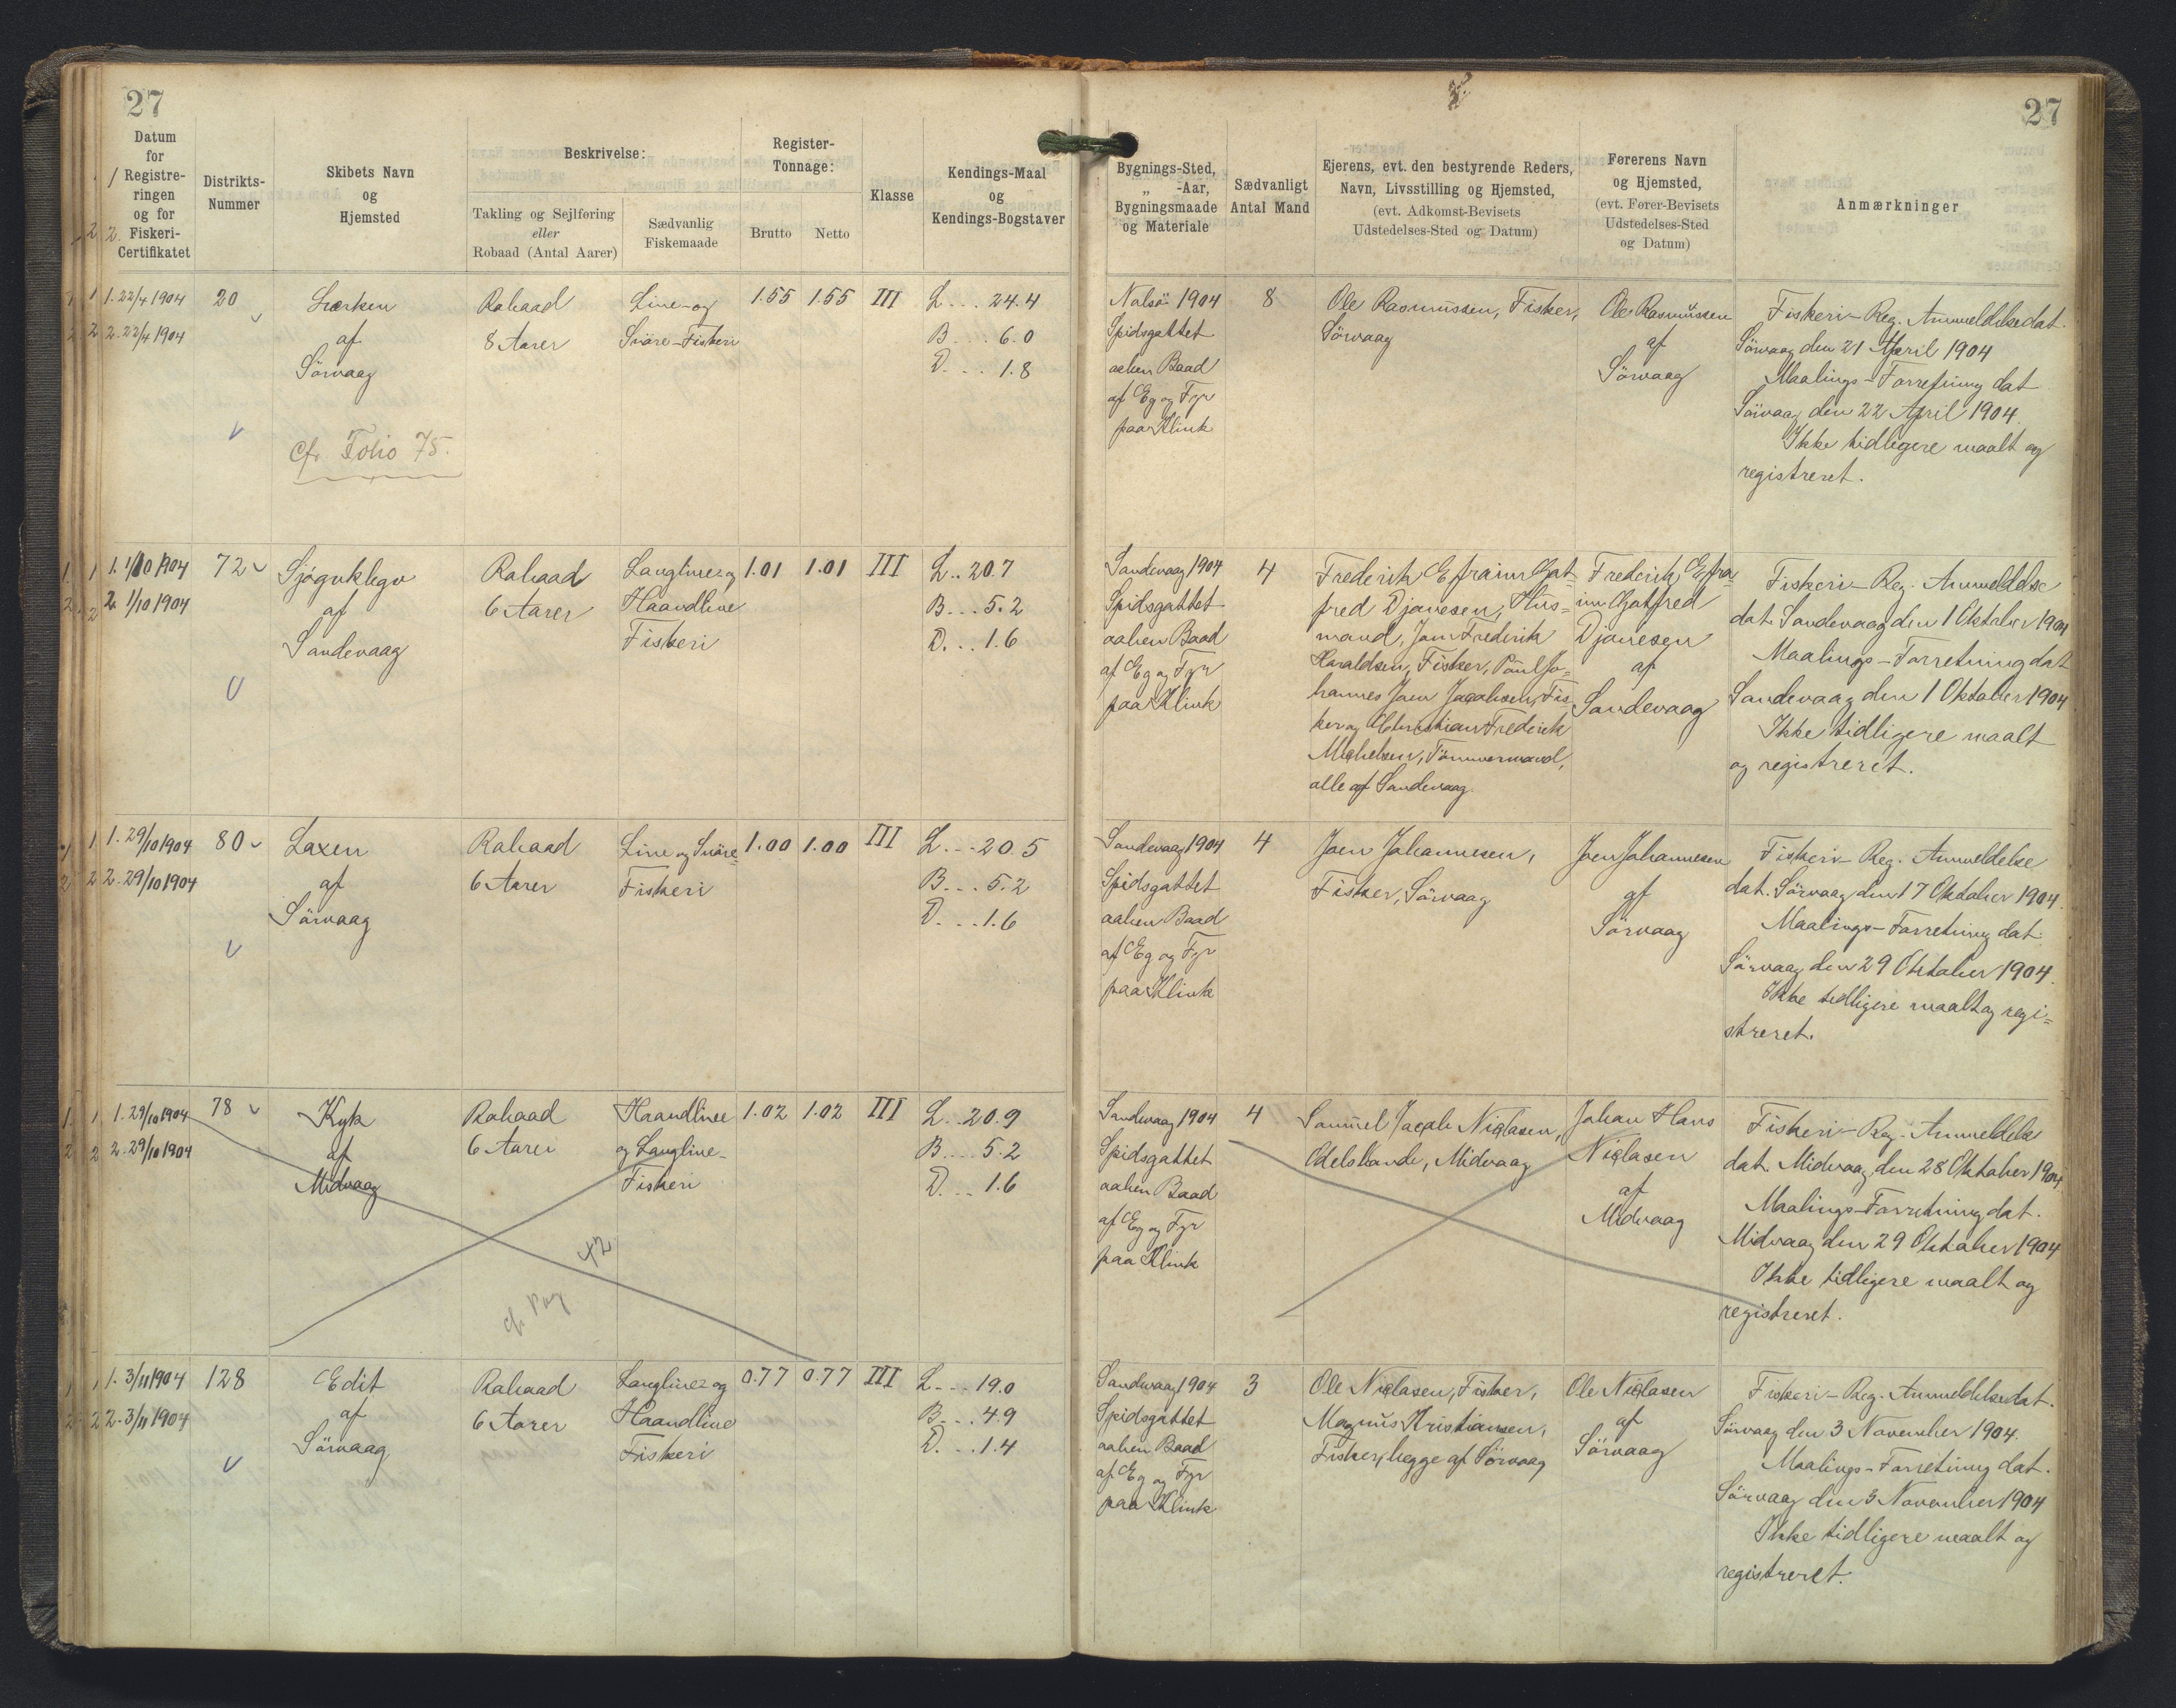 27
Datum
for
Registre-
ringen
og for
Fiskeri-
Certifikatet
Distrikts-
Nummer
Skibets Navn
og
Hjemsted
Beskrivelse:
Takling og Sejlføring
eller
Robaad (Antal Aarer)
Sædvanlig
Fiskemaade
Register-
Tonnage:
Brutto
Netto
Klasse
Kendings-Maal
og
Kendings-Bogstaver
27
Bygnings-Sted,
„ -Aar,
Bygningsmaade
og Materiale
Sædvanligt
Antal Mand
Ejerens, evt. den bestyrende Reders,
Navn, Livsstilling og Hjemsted,
(evt. Adkomst-Bevisets
Udstedelses-Sted og Datum)
Førerens Navn
og Hjemsted,
(evt. Fører-Bevisets
Udstedelses-Sted
og Datum)
Anmærkninger
1. 22/4 1904
2. 22/4 1904
20
Lærken
af
Sörvaag
cfr Folio 75.
Robaad
8 Aarer
Line- og
Snöre-Fiskeri
1.55
1.55
III
L... 24.4
B.... 6.0
D.... 1.8
Nolsö 1904
Spidsgattet
aaben Baad
af Eg og Fyr
paa Klink
8
Ole Rasmussen, Fisker,
Sörvaag
Ole Rasmussen
af
Sörvaag
Fiskeri-Reg. Anmeldelse dat.
Sörvaag den 21 April 1904
Maalings-Forretning dat
Sörvaag den 22 April 1904.
Ikke tidligere maalt og
registreret.
1. 1/10 1904
2. 1/10 1904
72
Sjógvklegv
af
Sandevaag
Robaad
6 Aarer
Langline= og
Haandline
Fiskeri
1.01
1.01
III
L.. 20.7
B... 5.2
D... 1.6
Sandevaag 1904
Spidsgattet
aaben Baad
af Eg og Fyr
paa Klink
4
Frederik Efraim Got=
fred Djonesen, Hus=
mand, Joen Frederik
Haraldsen, Fisker, Poul Jo=
hannes Joen Jacobsen, Fis=
ker og Christian Frederik
Michelsen, Tömmermand,
alle af Sandevaag.
Frederik Efra=
im Gotfred
Djonesen
af
Sandevaag
Fiskeri-Reg. Anmeldelse
dat. Sandevaag den 1 Oktober 1904
Maalings-Forretning dat
Sandevaag den 1 Oktober 1904
Ikke tidligere maalt
og registreret.
1. 29/10 1904
2. 29/10 1904
80
Laxen
af
Sörvaag
Robaad
6 Aarer
Line og Snöre=
Fiskeri
1.00
1.00
III
L... 20.5
B... 5.2
D... 1.6
Sandevaag 1904
Spidsgattet
aaben Baad
af Eg og Fyr
paa Klink
4
Joen Johannesen,
Fisker, Sörvaag
Joen Johannesen
af
Sörvaag
Fiskeri-Reg. Anmeldelse
dat. Sörvaag den 17 Oktober 1904.
Maalings-Forretning dat.
Sörvaag den 29 Oktober 1904.
Ikke tidligere maalt og regi=
streret.
1. 29/10 1904
2. 29/10 1904
78
Kyk
af
Midvaag
Robaad
6 Aarer
cf. Pag 42
Haandline
og Langline-
Fiskeri
1.02
1.02
III
L.. 20.9
B.... 5.2
D... 1.6
Sandevaag 1904
Spidsgattet
aaben Baad
af Eg og Fyr
paa Klink
4
Samuel Jacob Niclasen,
Odelsbonde, Midvaag
Johan Hans
Niclasen
af
Midvaag
Fiskeri-Reg. Anmeldelse
dat. Midvaag den 28 Oktober 1904
Maalings-Forretning dat.
Midvaag den 29 Oktober 1904
Ikke tidligere maalt og
registreret.
1. 3/11 1904
2. 3/11 1904
128
Edit
af
Sörvaag
Robaad
6 Aarer
Langline= og
Haandline
Fiskeri
0.77
0.77
III
L... 19.0
B... 4.9
D... 1.4
Sandevaag 1904
Spidsgattet
aaben Baad
af Eg og Fyr
paa Klink
3
Ole Niclasen, Fisker,
Magnus Kristiansen,
Fisker, begge af Sörvaag
Ole Niclasen
af
Sörvaag
Fiskeri-Reg. Anmeldelse dat.
Sörvaag den 3 November 1904.
Maalings-Forretning dat.
Sörvaag den 3 November 1904
Ikke tidligere maalt og
registreret.